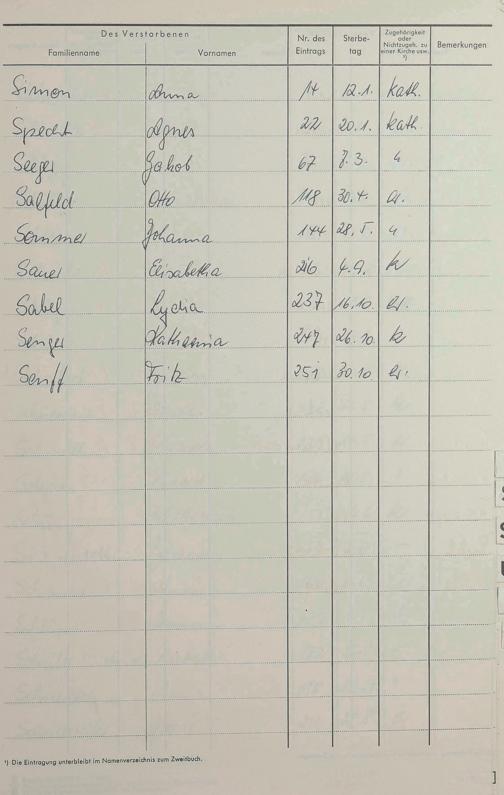 Des Verstorbenen
Familienname Vornamen Nr. des Eintrags Sterbe-tag Zugehörigkeit oder Nichtzugeh. zu einer Kirche usw. ¹) Bemerkungen
Simon Anna 14 12.1. kath.
Specht Agnes 22 20.1. kath
Seeger Jakob 67 7.3. "
Salfeld Otto 118 30.4. ev.
Sommer Johanna 144 28.5. "
Sauer Elisabetha 216 4.9. k
Sabel Lydia 237 16.10. ev.
Senger Katharina 247 26.10. k
Senff Fritz 251 30.10. ev.
¹) Die Eintragung unterbleibt im Namenverzeichnis zum Zweitbuch.